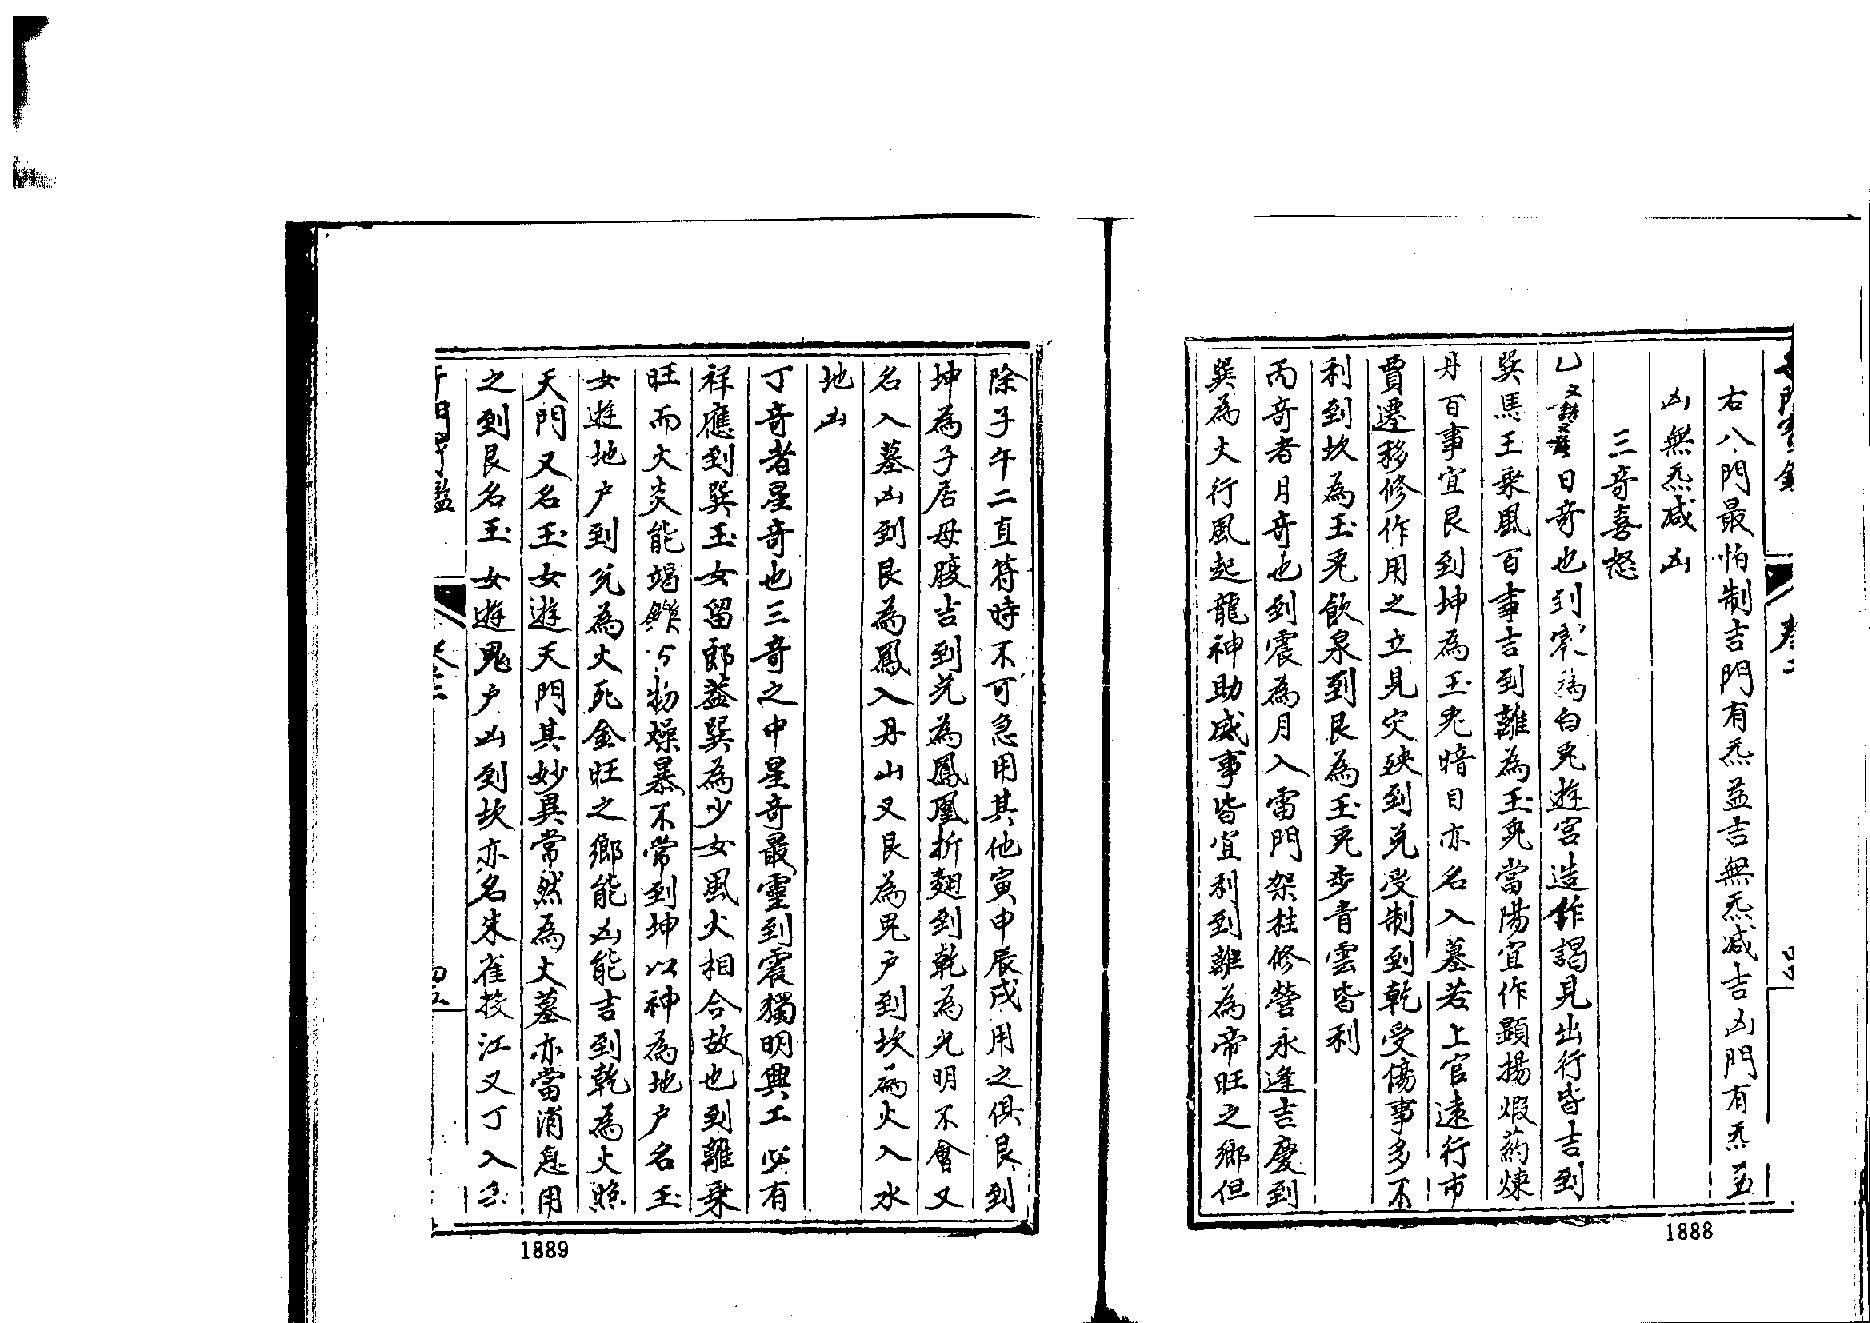 右八門最怕制吉門有炁益吉無炁减吉凶門有炁益
凶無炁减凶
三奇喜怒
乙日奇也到震為白兎遊宮造作謁見出行皆吉到
巽馬玉乘風百事吉到離為玉兎當陽宜作顯揚煆葯煉
丹百事宜艮到坤為玉兎暗目亦名入墓若上官遠行市
賈遷移修作用之立見灾殃到兌受制到乾受傷事多不
利到坎為玉兎飲泉到艮為玉兎步青雲皆利
丙奇者月奇也到震為月入雷門架柱修營永逢吉慶到
巽為火行風起龍神助威事皆宜利到離為帝旺之鄉但
1888
除子午二直符時不可急用其他寅申辰戌用之俱良到
坤為子居母腹吉到兌為鳳凰折翅到乾為光明不會又
名入墓凶到艮為鳳入丹山又艮為鬼户到坎為火入水
地凶
丁奇者星奇也三奇之中星奇最靈到震獨明興工必有
祥應到巽玉女留郎蓋巽為少女風火相合故也到離乘
旺而火炎能竭鑠万物燥暴不常到坤以神為地户名玉
女遊地户到兌為火死金旺之鄉能凶能吉到乾為火照
天門又名玉女遊天門其妙異常然為火墓亦當消息用
之到艮名玉女遊鬼户凶到坎亦名朱雀投江又丁入
1889